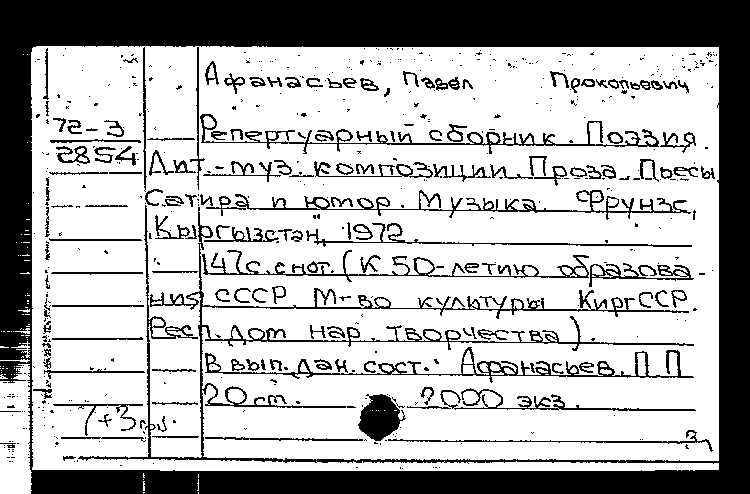 Афанасьев, Павел Прокопьевич
72-3 Репертуарный сборник. Поэзия.
2854 Лит.-муз. композиции. Проза. Пьесы.
Сатира и юмор. Музыка. Фрунзе,
"Кыргызстан", 1972.
147с. с нот. (К 50-летию образова-
ния СССР. М-во культуры КиргССР.
Респ. дом нар. творчества).
В вып. дан. сост.: Афанасьев. П П
20 см. 2000 экз.
1+3